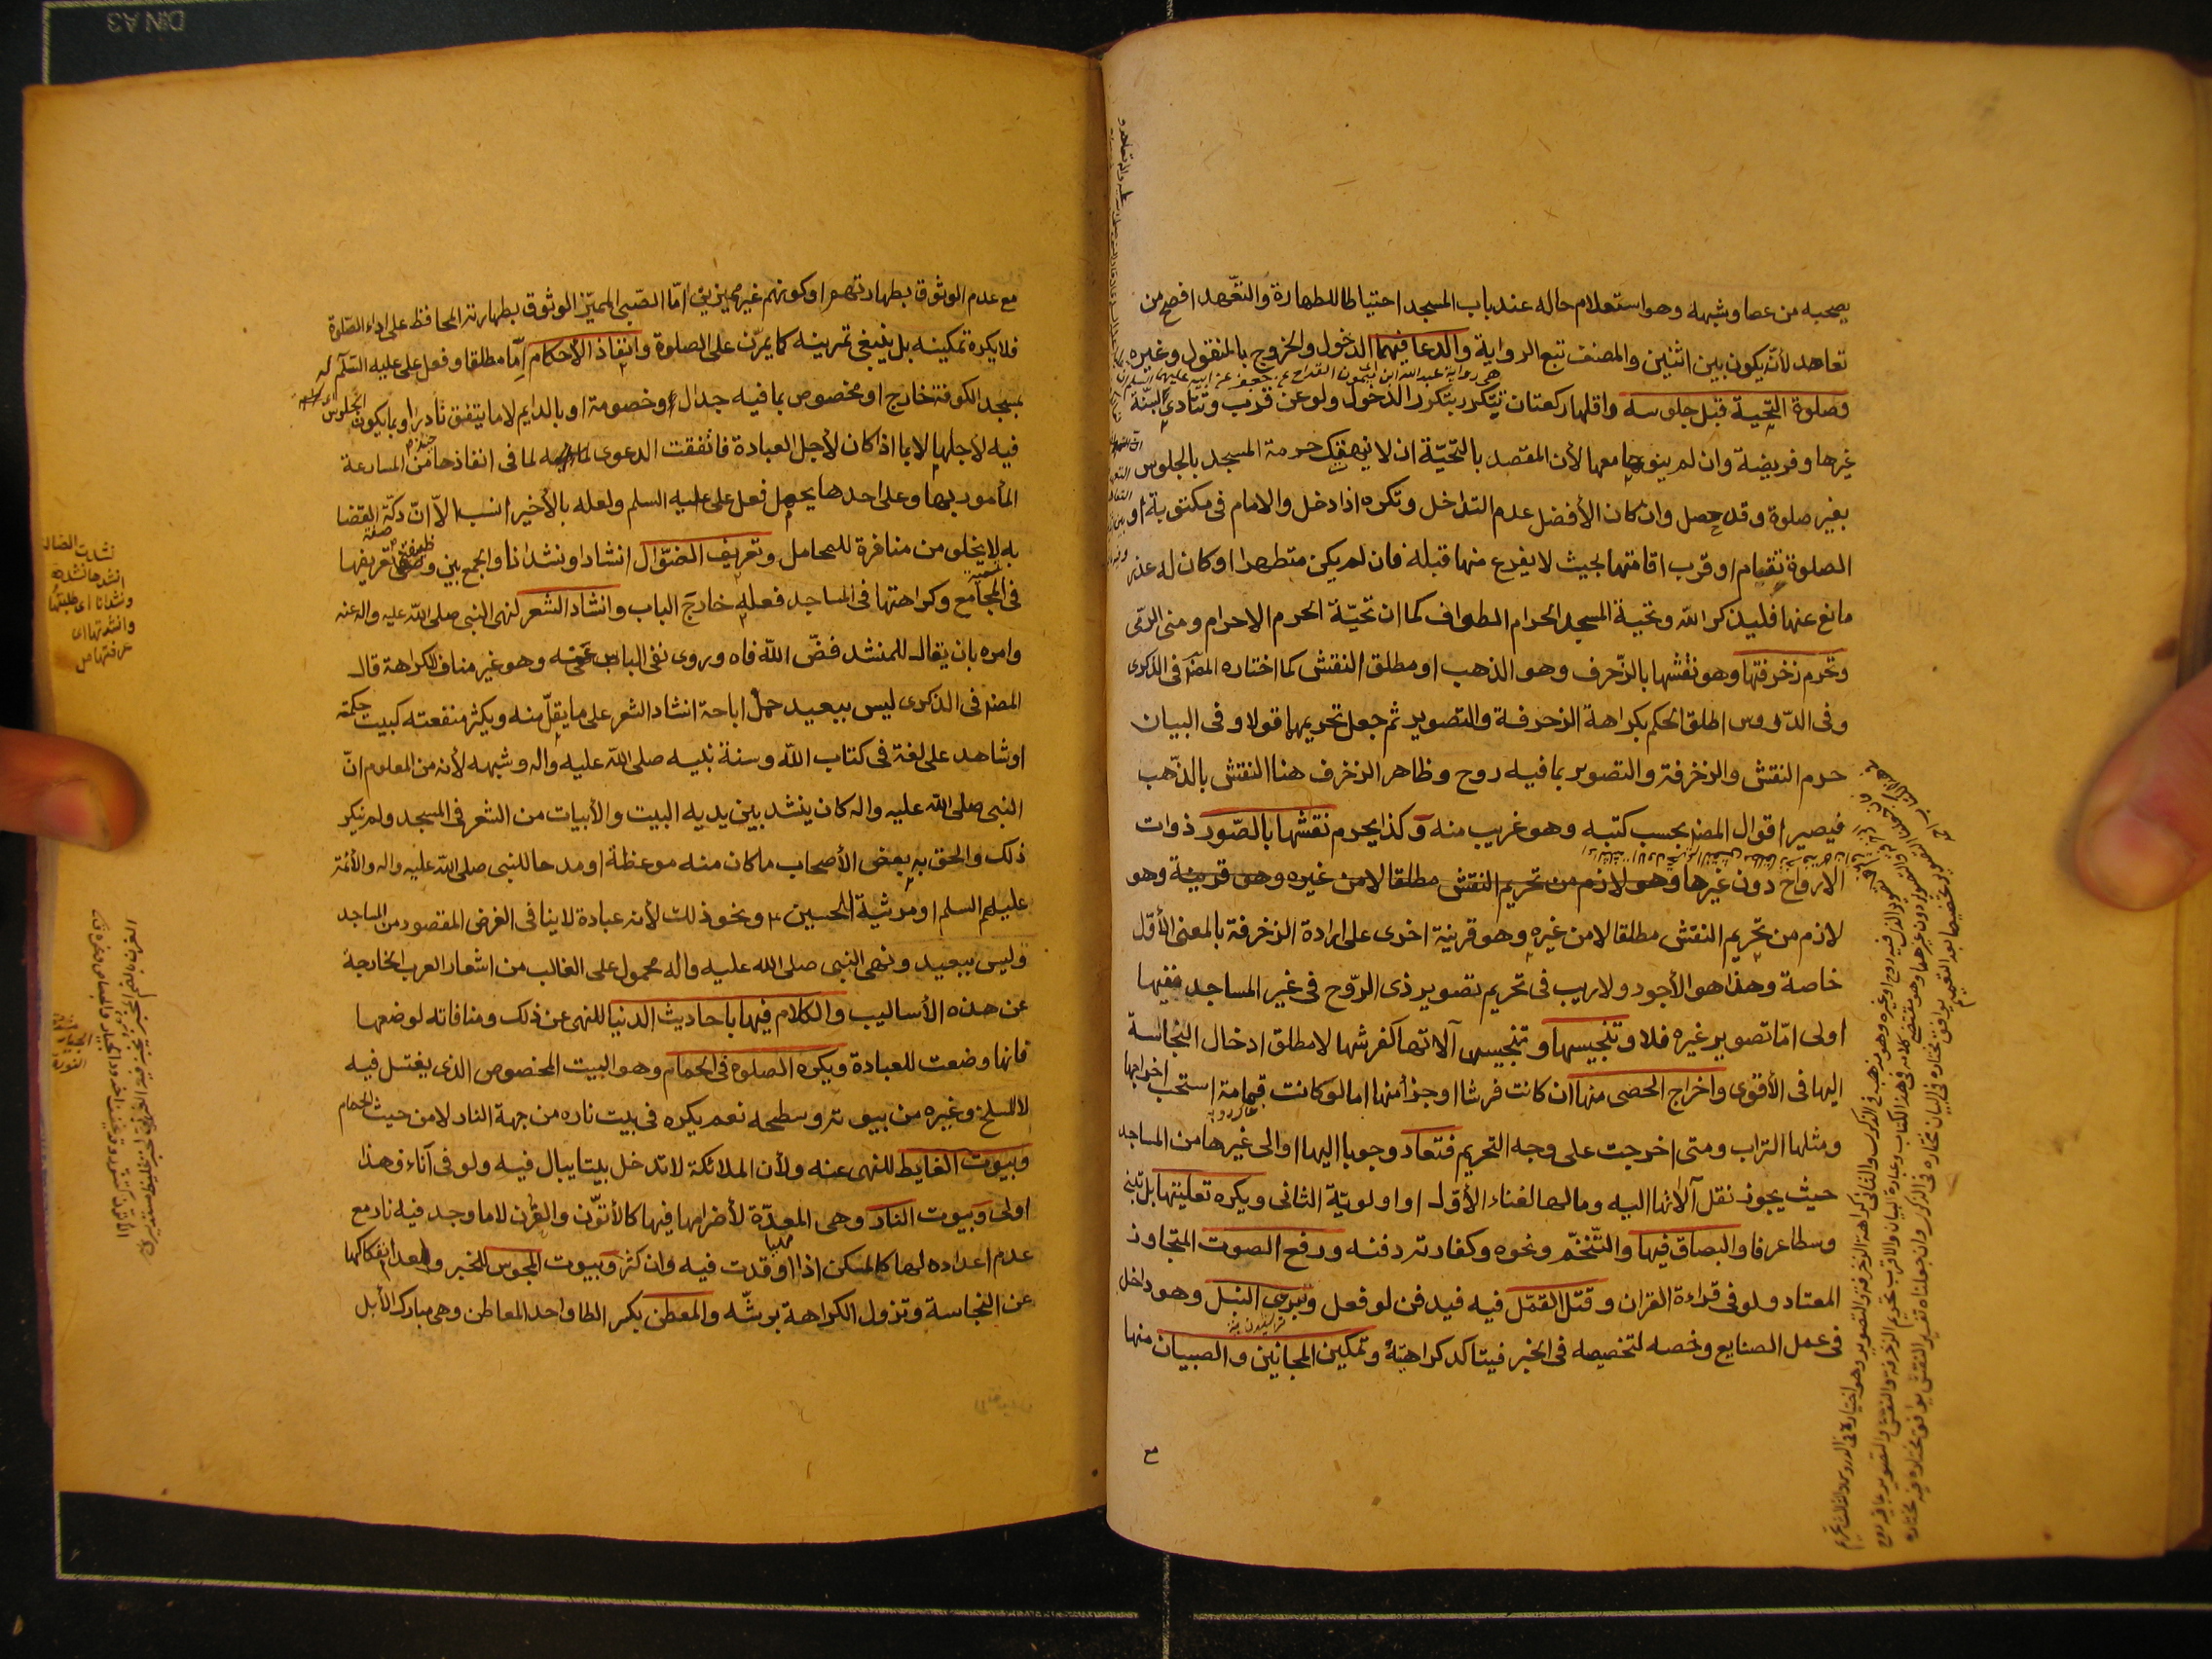 يصحبه من عصا وشبهه وهو استعلام حاله عند باب المسجد احتياطا للطهارة والتعهد افصح من
تعاهد لأنه يكون بين اثنين والمصنف تبع الرواية والدعا فيهما الدخول والخروج بالمنقول وغيره
وصلوة التحية قبل جلوسه واقلها ركعتان تتكرر بتكرر الدخول ولو عن قرب وتتادى بسنة
غيرها وفريضة وان لم ينو معها لأن المقصد بالتحية ان لا ينهتك حرمة المسجد بالجلوس
بغير صلوة وقد حصل وان كان الأفضل عدم التداخل وتكره اذا دخل والامام فى مكتوبة او
الصلوة تقام او قرب اقامتها بحيث لا يفرغ منها قبله فان لم يكن متطهرا او كان له عذر
مانع عنها فليذكر الله وتحية المسجد الحرام الطواف كما ان تحية الحرم الاحرام ومنى الرمى
وتحرم زخرفتها وهو نقشها بالزخرف وهو الذهب او مطلق النقش كما اختاره المصنف فى الذكرى
وفى الدروس اطلق الحكم بكراهة الزخرفة والتصوير ثم جعل تحريمها قولا وفى البيان
حرم النقش والزخرفة والتصوير بما فيه روح وظاهر الزخرف هنا النقش بالذهب
فيصير اقوال المصنف بحسب كتبه وهو غريب منه وكذا يحرم نقشها بالصور ذوات
الارواح دون غيرها وهو لازم من تحريم النقش مطلقا لا من غيره وهو قرينة وهو
لازم من تحريم النقش مطلقا لا من غيره وهو قرينة اخرى على ارادة الزخرفة بالمعنى الأول
خاصة وهذا هو الأجود ولا ريب فى تحريم تصوير ذى الروح فى غير المساجد ففيها
اولى اما تصوير غيره فلا وتنجيسها وتنجيس آلاتها كفرشها لا مطلق ادخال النجاسة
اليها فى الأقوى واخراج الحصى منها ان كانت فرشا او جزأ منها اما لو كانت قمامة استحب اخراجها
ومثلها التراب ومتى اخرجت على وجه التحريم فتعاد وجوبا اليها او الى غيرها من المساجد
حيث يجوز نقل آلاتها اليه ومالها لغناء الأول او اولوية الثانى ويكره تعليتها بل تبنى
وسطا عرفا والبصاق فيها والتنخم ونحوه وكفارته دفنه ورفع الصوت المتجاوز
المعتاد ولو فى قراءة القران وقتل القمل فيه فيدفن لو فعل وبرى النبل وهو داخل
فى عمل الصنايع وخصه لتخصيصه فى الخبر فيتاكد كراهته وتمكين المجانين والصبيان منها
مع
مع عدم الوثوق بطهارتهم او كونهم غير مميزين اما الصبى المميز الوثوق بطهارته المحافظ على اداء الصلوة
فلا يكره تمكينه بل ينبغى تمرينه كما يمرن على الصلوة وانفاذ الأحكام اما مطلقا وفعل على عليه السلم له
بمسجد الكوفة خارج او مخصوص بما فيه جدال وخصومة او بالدايم لا ما يتفق نادرا او بما يكون الجلوس
فيه لأجلها لا بما اذا كان لأجل العبادة فاتفقت الدعوى لما فى انفاذها من المسارعة
المأمور بها وعلى احدها يحمل فعل على عليه السلم ولعله بالأخير انسب الا ان دكة القضا
به لا يخلو من منافرة للمحامل وتعريف الضوال انشادا ونشدانا والجمع بين وظيفتى تعريفها
فى المجامع وكراهتها فى المساجد فعله خارج الباب وانشاد الشعر لنهى النبى صلى الله عليه واله عنه
وامره بان يقال للمنشد فض الله فاه وروى نفى الباس عنه وهو غير مناف للكراهة قال
المصنف فى الذكرى ليس ببعيد حمل اباحة انشاد الشعر على ما يقل منه ويكثر منفعته كبيت حكمة
او شاهد على لغة فى كتاب الله وسنة نبيه صلى الله عليه واله وشبهه لأنه من المعلوم ان
النبى صلى الله عليه واله كان ينشد بين يديه البيت والأبيات من الشعر فى المسجد ولم ينكر
ذلك والحق به بعض الأصحاب ما كان منه موعظة او مدحا للنبى صلى الله عليه واله والأئمة
عليهم السلم او مرثية الحسين ونحو ذلك لأنه عبادة لا ينافى الغرض المقصود من المساجد
وليس ببعيد ونهى النبى صلى الله عليه واله محمول على الغالب من اشعار العرب الخارجة
عن هذه الأساليب والكلام فيها باحاديث الدنيا للنهى عن ذلك ومنافاته لوضعها
فانها وضعت للعبادة ويكره الصلوة فى الحمام وهو البيت المخصوص الذى يغتسل فيه
لا المسلخ وغيره من بيوته وسطحه نعم يكره فى بيت ناره من جهة النار لا من حيث الحمام
وبيوت الغايط للنهى عنه ولأن الملائكة لا تدخل بيتا يبال فيه ولو فى آناء فهذا
اولى وبيوت النار وهى المعدة لأضرامها فيها كالأتون والفرن لا ما وجد فيه نار مع
عدم اعداده لها كالمسكن اذا اوقدت فيه وان كثر وبيوت المجوس للخبر ولعدم انفكاكها
عن النجاسة وتزول الكراهة برشه والمعطن بكسر الطا واحد المعاطن وهى مبارك الأبل
نشدت الضالة
انشدها نشدة
ونشدانا اى طلبتها
وانشدتها اى
عرفتها